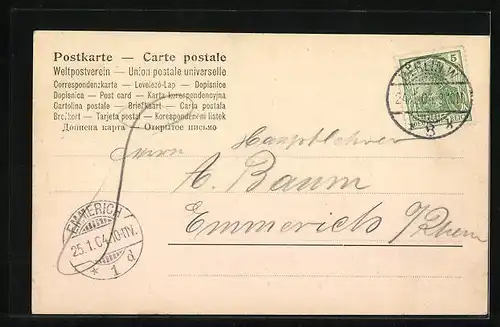 Postkarte — Carte postale
Weltpostverein — Union postale universelle
Correspondenzkarte — Levelező-Lap — Dopisnice
Dopisnica — Post card — Karta korespondencyjna
Cartolina postale — Briefkaart — Carta postala
Brefkort — Tarjeta postal — Korespondenční listek
Дописна карта — Открытое письмо
5
BERLIN W.
8
Herrn Hauptlehrer
A. Baum
Emmerich a/Rhein
EMMERICH
25.1.04.10-11V.
* 1 d